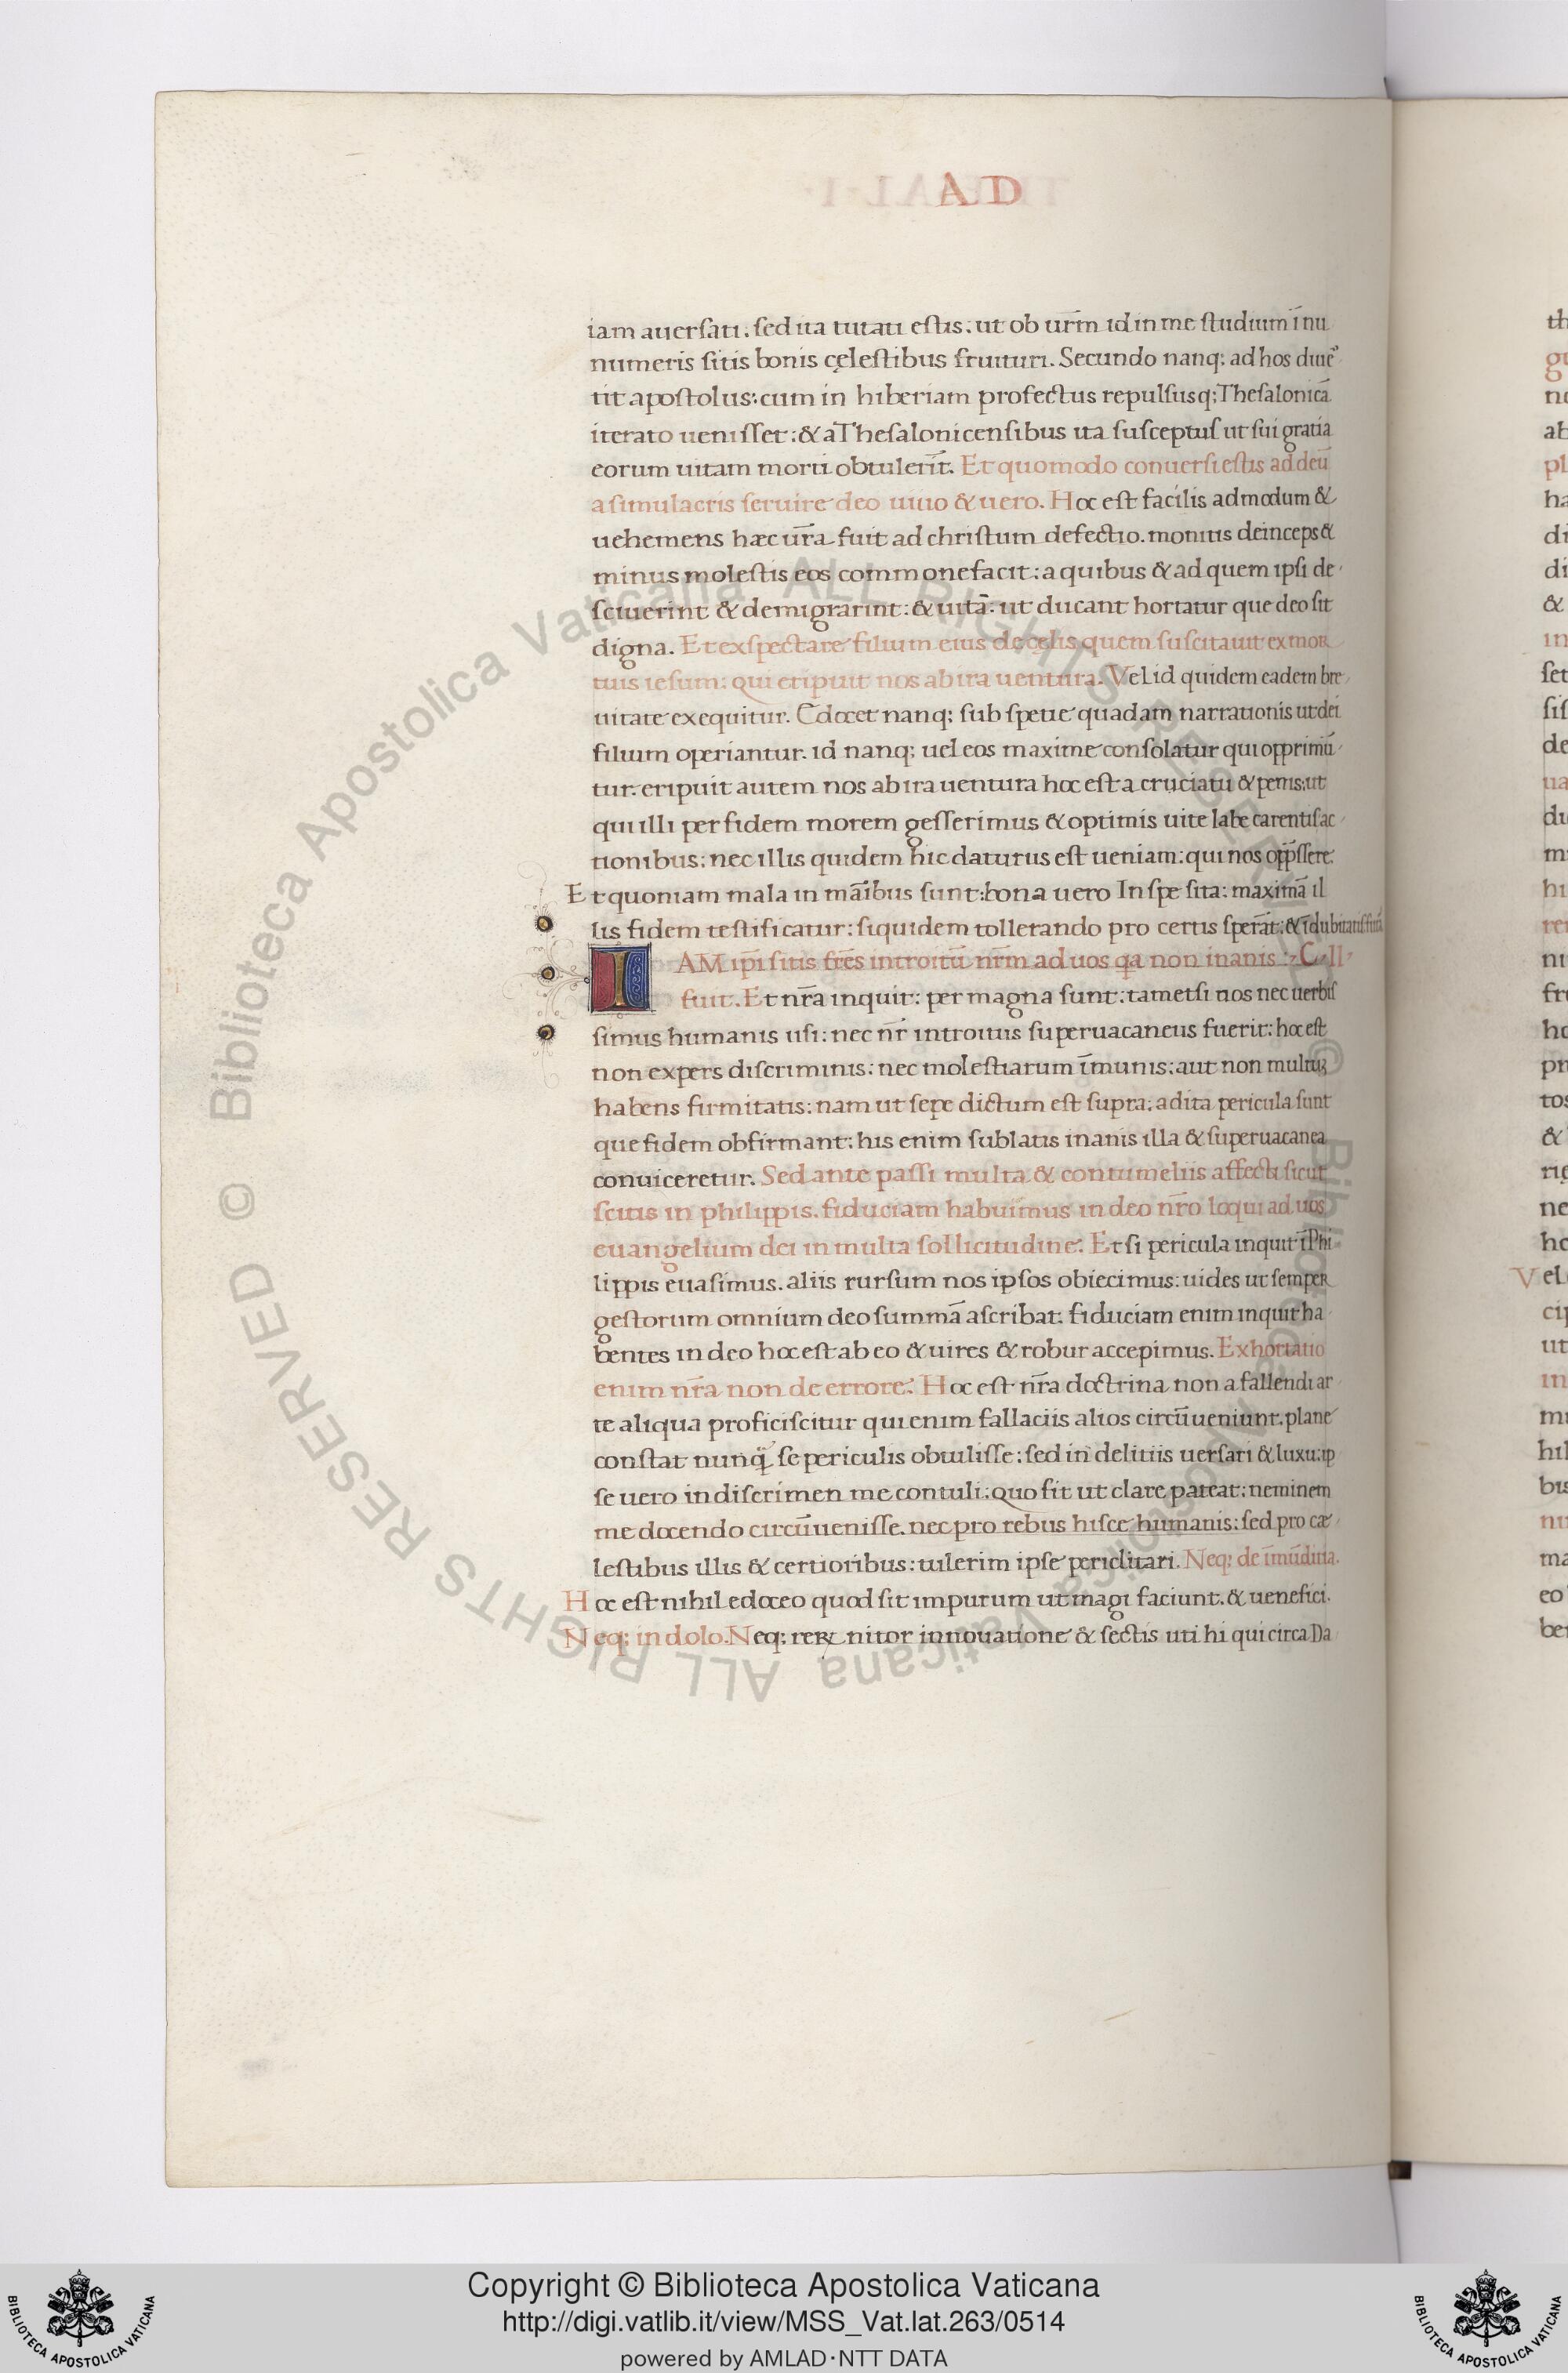 AD
iam auersati: sed ita tutati estis: ut ob ur̄m id in me studium īnu
numeris sitis bonis cęlestibus fruituri. Secundo nanq; ad hos diue
tit apostolus: cum in hiberiam profectus repulsusq; Thesalonicā
iterato uenisset: & a Thesalonicensibus ita susceptus ut sui gratia
eorum uitam morti obtulerīt. Et quomodo conuersi estis ad deū
a simulacris seruire deo uiuo & uero. Hoc est facilis admodum &
uehemens hæc ur̄a fuit ad christum defectio. monitis deinceps &
minus molestis eos commonefacit: a quibus & ad quem ipsi de
sciuerint & demigrarint: & uitā: ut ducant hortatur que deo sit
digna. Et exspectare filium eius de cęlis quem suscitauit ex mor
tuis iesum: qui eripuit nos ab ira uentura. Vel id quidem eadem bre
uitate exequitur. Edocet nanq; sub spetie quadam narrationis ut dei
filium operiantur. id nanq; uel eos maxime consolatur qui opprimū
tur. eripuit autem nos ab ira uentura hoc est a cruciatu & penis: ut
qui illi per fidem morem gesserimus & optimis uite labe carentis ac
tionibus: nec illis quidem hic daturus est ueniam: qui nos opp̄ssere.
Et quoniam mala in māibus sunt: bona uero In spe sita: maximā il
lis fidem testificatur: siquidem tollerando pro certis sperāt: & īdubitatissimis
IAM ip̄i sitis fr̄es introitū nr̄m ad uos qa non inanis C. II
fuit. Et nr̄a inquit: per magna sunt: tametsi nos nec uerbis
simus humanis usi: nec nr̄ introitus superuacaneus fuerit: hoc est
non expers discriminis: nec molestiarum īmunis: aut non multuz
habens firmitatis: nam ut sepe dictum est supra: adita pericula sunt
que fidem obfirmant: his enim sublatis inanis illa & superuacanea
conuiceretur. Sed ante passi multa & contumeliis affecti sicut
scitis in philippis. fiduciam habuimus in deo nr̄o loqui ad uos
euangelium dei in multa sollicitudine. Et si pericula inquit ī Phi
lippis euasimus. aliis rursum nos ipsos obiecimus: uides ut semper
gestorum omnium deo summā ascribat. fiduciam enim inquit ha
bentes in deo hoc est ab eo & uires & robur accepimus. Exhortatio
enim nr̄a non de errore. Hoc est nr̄a doctrina non a fallendi ar
te aliqua proficiscitur qui enim fallaciis alios circūueniunt. plane
constat nunq̄ se periculis obtulisse: sed in delitiis uersari & luxu: ip
se uero in discrimen me contuli: quo fit ut clare pateat: neminem
me docendo circūuenisse. nec pro rebus hisce humanis: sed pro cæ
lestibus illis & certioribus: tulerim ipse periclitari. Neq; de īmūditia.
Hoc est nihil edoceo quod sit impurum ut magi faciunt. & uenefici.
Neq; in dolo. Neq; reꝝ nitor innouatione & sectis uti hi qui circa Da
© Biblioteca Apostolica Vaticana ALL RIGHTS RESERVED
© Biblioteca Apostolica Vaticana ALL RIGHTS RESERVED
Copyright © Biblioteca Apostolica Vaticana
http://digi.vatlib.it/view/MSS_Vat.lat.263/0514
powered by AMLAD·NTT DATA
BIBLIOTECA APOSTOLICA VATICANA
BIBLIOTECA APOSTOLICA VATICANA